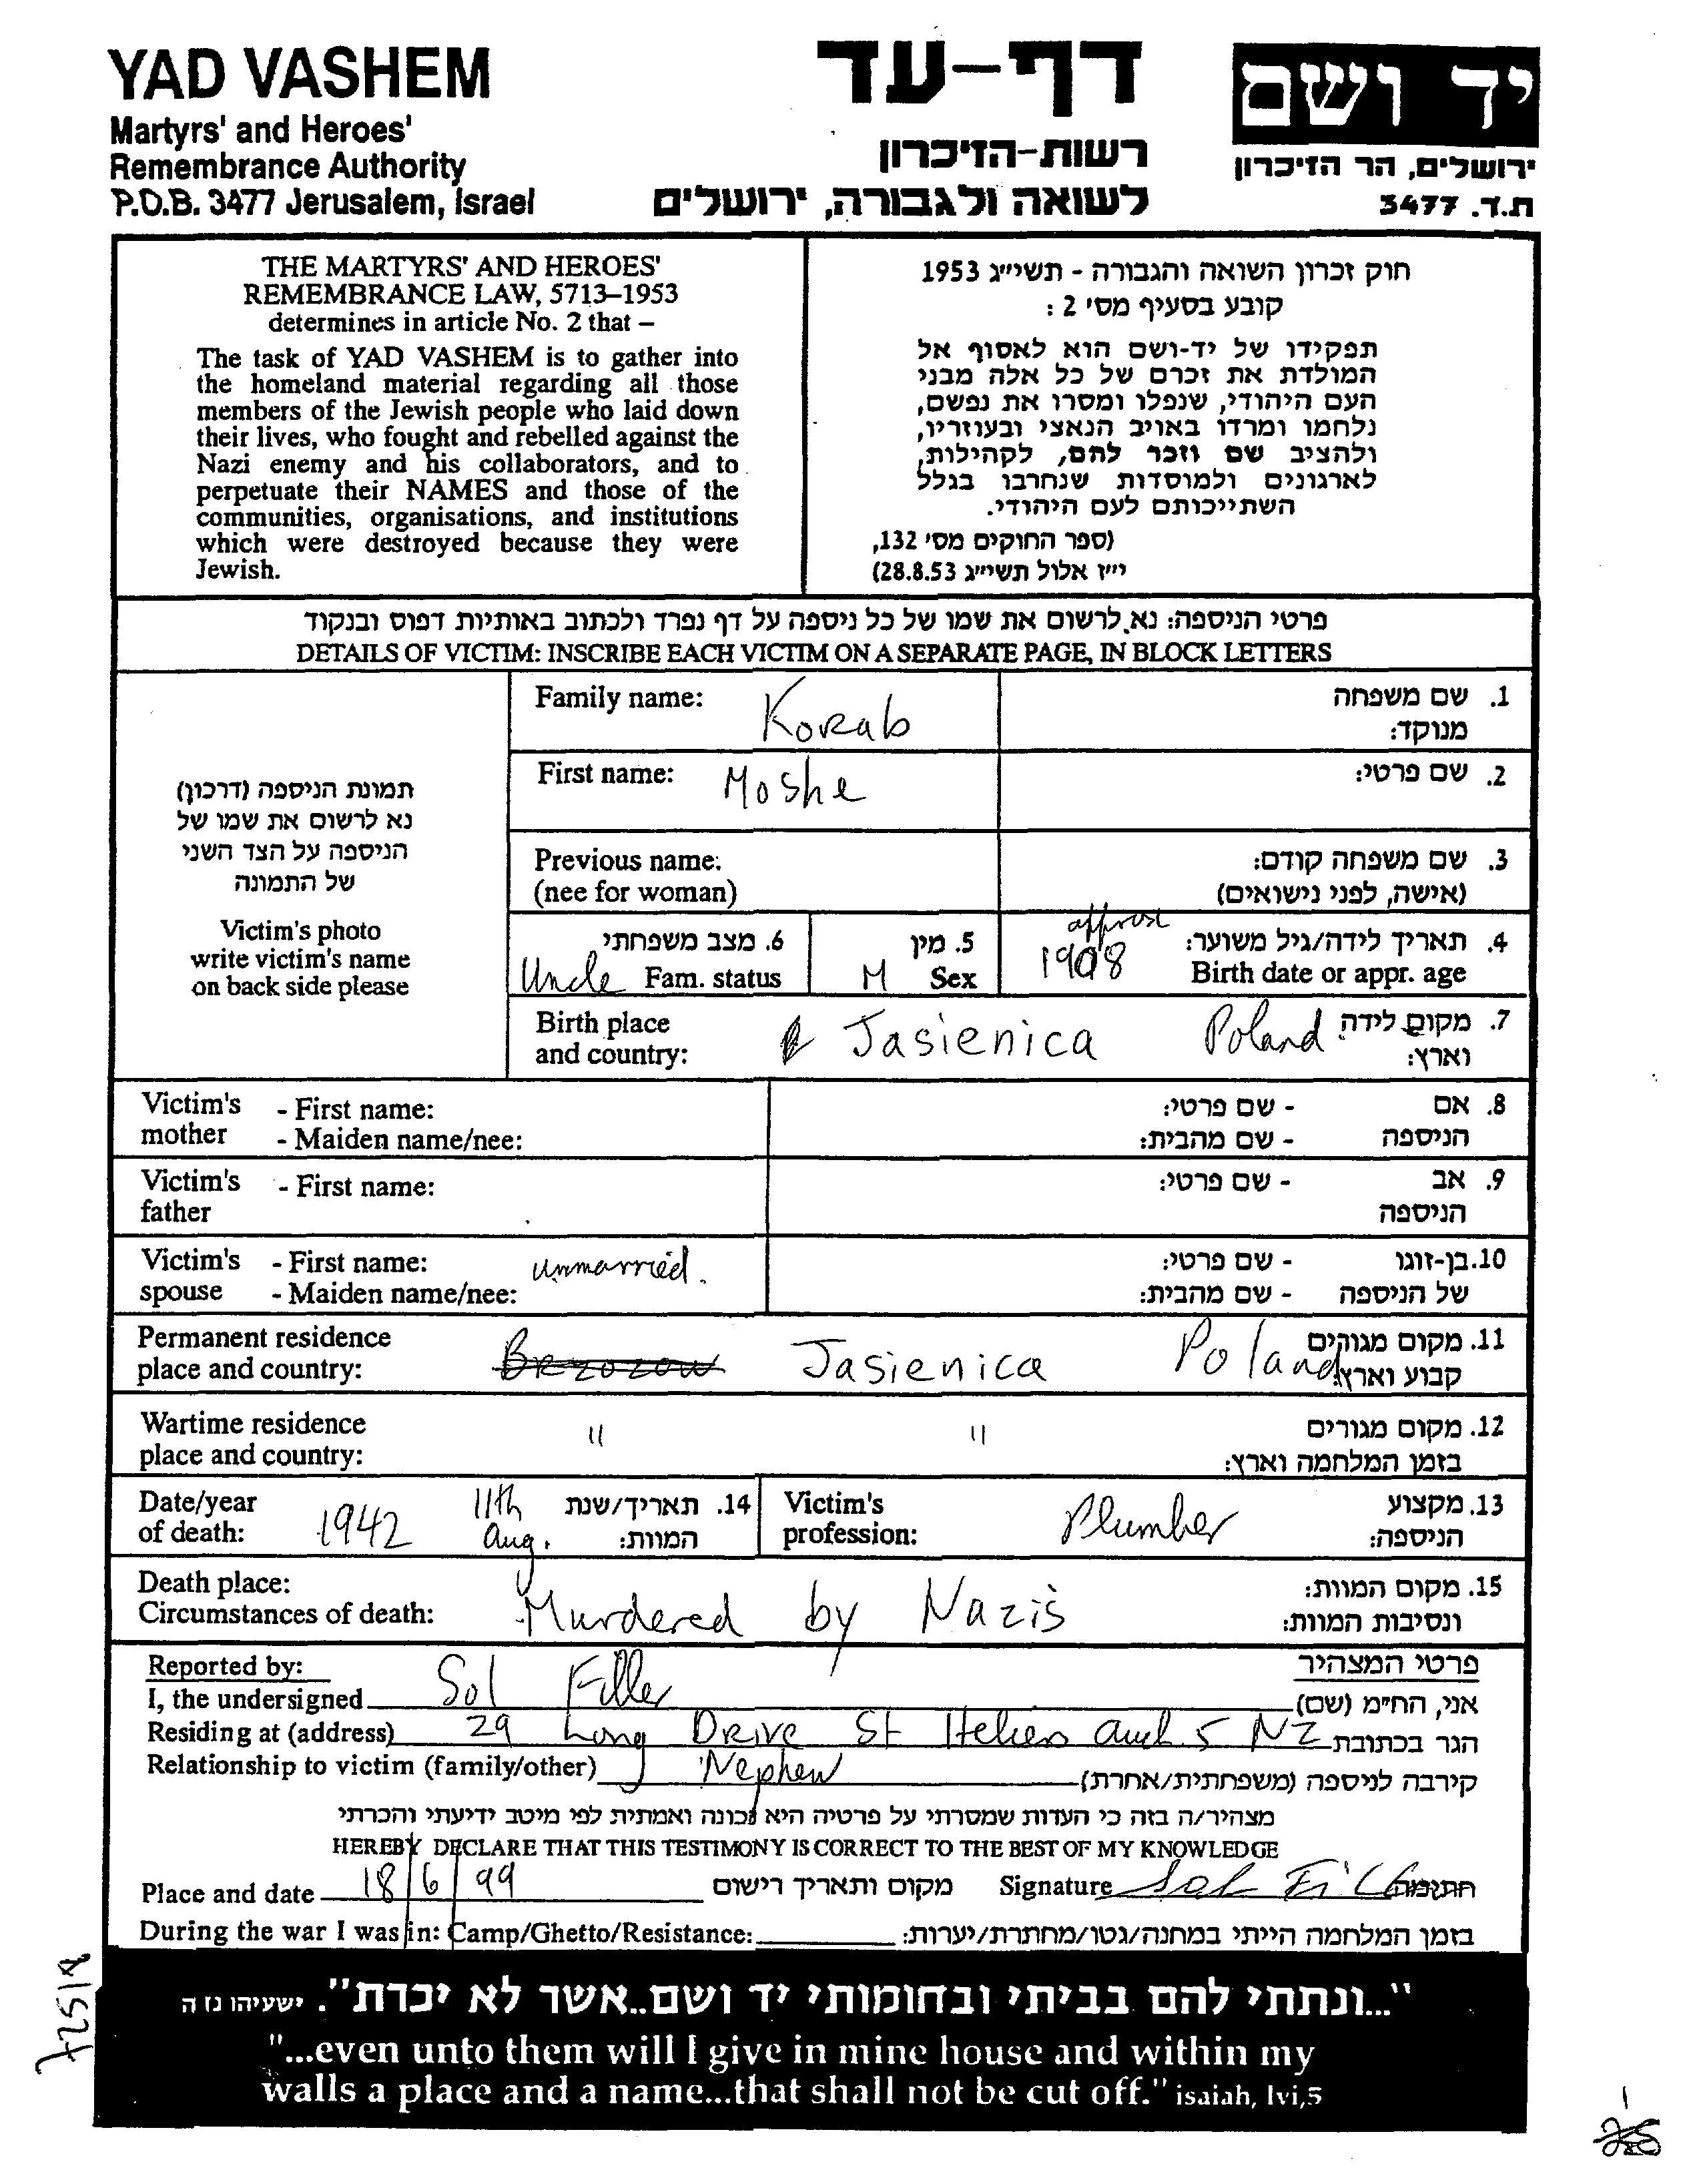 YAD VASHEM
Martyrs' and Heroes'
Remembrance Authority
P.O.B. 3477 Jerusalem, Israel
דף-עד
רשות-הזיכרון
לשואה ולגבורה, ירושלים
יד ושם
ירושלים, הר הזיכרון
ת.ד. 3477
THE MARTYRS' AND HEROES'
REMEMBRANCE LAW, 5713–1953
determines in article No. 2 that –
The task of YAD VASHEM is to gather into
the homeland material regarding all those
members of the Jewish people who laid down
their lives, who fought and rebelled against the
Nazi enemy and his collaborators, and to
perpetuate their NAMES and those of the
communities, organisations, and institutions
which were destroyed because they were
Jewish.
חוק זכרון השואה והגבורה - תשי״ג 1953
קובע בסעיף מס' 2 :
תפקידו של יד-ושם הוא לאסוף אל
המולדת את זכרם של כל אלה מבני
העם היהודי, שנפלו ומסרו את נפשם,
נלחמו ומרדו באויב הנאצי ובעוזריו,
ולהציב שם וזכר להם, לקהילות,
לארגונים ולמוסדות שנחרבו בגלל
השתייכותם לעם היהודי.
(ספר החוקים מס' 132,
י״ז אלול תשי״ג 28.8.53)
פרטי הניספה: נא לרשום את שמו של כל ניספה על דף נפרד ולכתוב באותיות דפוס ובנקוד
DETAILS OF VICTIM: INSCRIBE EACH VICTIM ON A SEPARATE PAGE, IN BLOCK LETTERS
תמונת הניספה (דרכון)
נא לרשום את שמו של
הניספה על הצד השני
של התמונה
Victim's photo
write victim's name
on back side please
Family name: Korab 1. שם משפחה
מנוקד:
First name: Moshe 2. שם פרטי:
Previous name: 3. שם משפחה קודם:
(nee for woman) (אישה, לפני נישואים)
6. מצב משפחתי 5. מין approx 4. תאריך לידה/גיל משוער:
Uncle Fam. status M Sex 1908 Birth date or appr. age
Birth place Jasienica Poland 7. מקום לידה
and country: וארץ:
Victim's - First name: - שם פרטי: 8. אם
mother - Maiden name/nee: - שם מהבית: הניספה
Victim's - First name: - שם פרטי: 9. אב
father הניספה
Victim's - First name: unmarried. - שם פרטי: 10. בן-זוגו
spouse - Maiden name/nee: - שם מהבית: של הניספה
Permanent residence 11. מקום מגורים
place and country: Brzozow Jasienica Poland קבוע וארץ:
Wartime residence " " 12. מקום מגורים
place and country: בזמן המלחמה וארץ:
Date/year 11th 14. תאריך/שנת Victim's 13. מקצוע
of death: 1942 Aug. המוות: profession: Plumber הניספה:
Death place: 15. מקום המוות:
Circumstances of death: Murdered by Nazis ונסיבות המוות:
Reported by: פרטי המצהיר
I, the undersigned Sol Filler אני, הח״מ (שם)
Residing at (address) 29 Long Drive St Heliers Auck 5 NZ הגר בכתובת
Relationship to victim (family/other) Nephew קירבה לניספה (משפחתית/אחרת)
מצהיר/ה בזה כי העדות שמסרתי על פרטיה היא נכונה ואמתית לפי מיטב ידיעתי והכרתי
HEREBY DECLARE THAT THIS TESTIMONY IS CORRECT TO THE BEST OF MY KNOWLEDGE
Place and date 18/6/99 מקום ותאריך רישום Signature Sol Filler חתימה
During the war I was in: Camp/Ghetto/Resistance: בזמן המלחמה הייתי במחנה/גטו/מחתרת/יערות:
"...ונתתי להם בביתי ובחומותי יד ושם..אשר לא יכרת". ישעיהו נו ה
"...even unto them will I give in mine house and within my
walls a place and a name...that shall not be cut off." isaiah, lvi,5